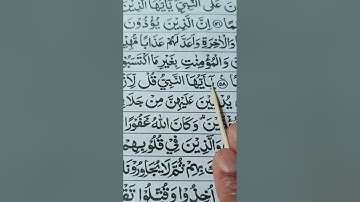 نَ عَلَى النَّبِيِّ يٰٓاَيُّهَا الَّذِيْنَ
مًا ۵۶ اِنَّ الَّذِيْنَ يُؤْذُوْنَ
وَالْاٰخِرَةِ وَاَعَدَّ لَهُمْ عَذَابًا مُّهِيْ
نَ وَالْمُؤْمِنٰتِ بِغَيْرِ مَا اكْتَسَبُوْ
ا ۵۸ يٰٓاَيُّهَا النَّبِيُّ قُلْ لِّاَزْ
يُدْنِيْنَ عَلَيْهِنَّ مِنْ جَلَا
ذَيْنَ ؕ وَكَانَ اللّٰهُ غَفُوْرًا
وَالَّذِيْنَ فِيْ قُلُوْبِهِمْ
بِهِمْ ثُمَّ لَا يُجَاوِرُوْنَ
اُخِذُوْا وَقُتِّلُوْا تَقْ